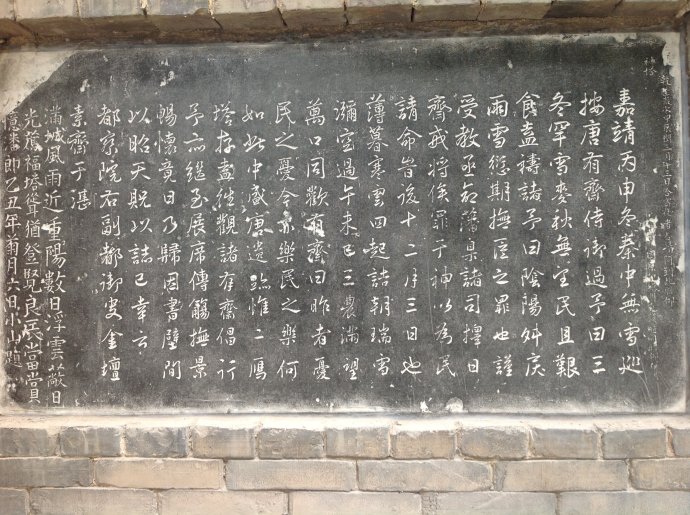 嘉靖丙申冬秦中無雪巡
按唐有齋侍御過予曰三
冬罕雪麥秋無望民且艱
食盍禱諸予曰陰陽舛戾
雨雪愆期撫臣之罪也謹
受教亟命藩臬諸司擇日
齋戒將俟罪于神以為民
請命旹後十二月三日也
薄暮寒雲四起詰朝瑞雪
瀰空過午未已三農滿望
萬口同歡有齋曰昨者憂
民之憂今亦樂民之樂何
如此中感唐遺跡惟二鴈
塔存盍徃觀諸有齋倡行
予亦繼至展席傳觴撫景
暢懷竟日乃歸因書壁間
以昭天貺以誌已幸云
都察院右副都御史金壇
素齋于湛
滿城風雨近重陽數日浮雲蔽日
光薦福塔聳猶登覽良辰當賞
億 即乙丑年雨月六日小山題